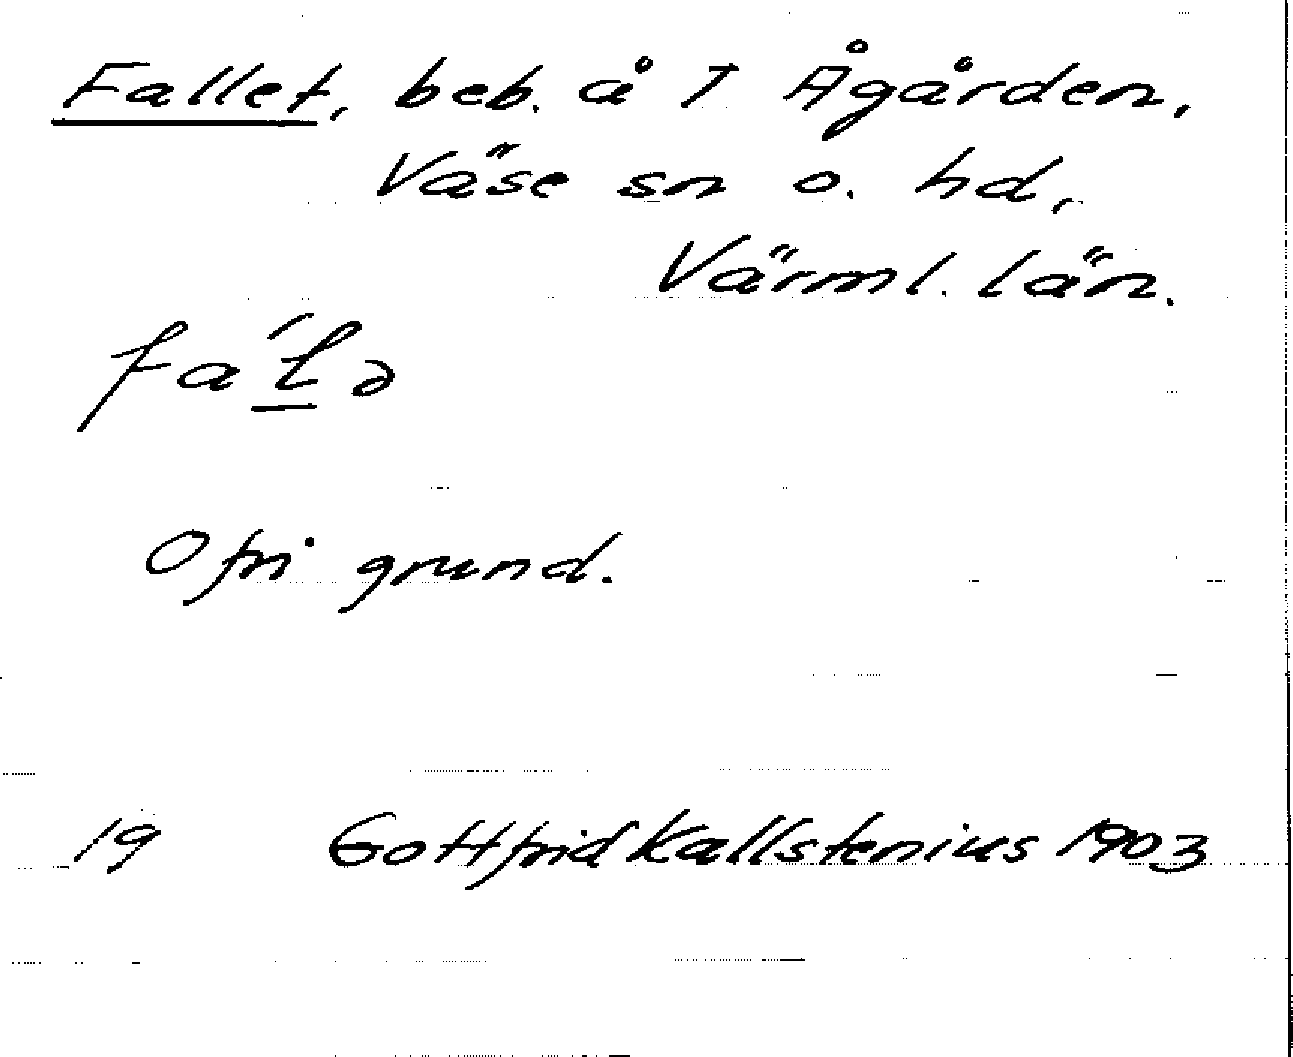 Fallet, beb. å T Ågården,
Väse sn o. hd,
Värml. län.
fa´ł̲ə
Ofri grund.
19 Gottfrid Kallstenius 1903